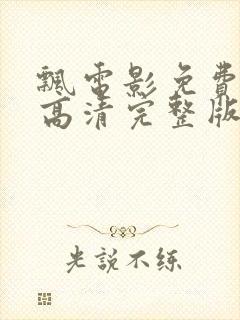 飘电影免费
高清完整版
光說不练